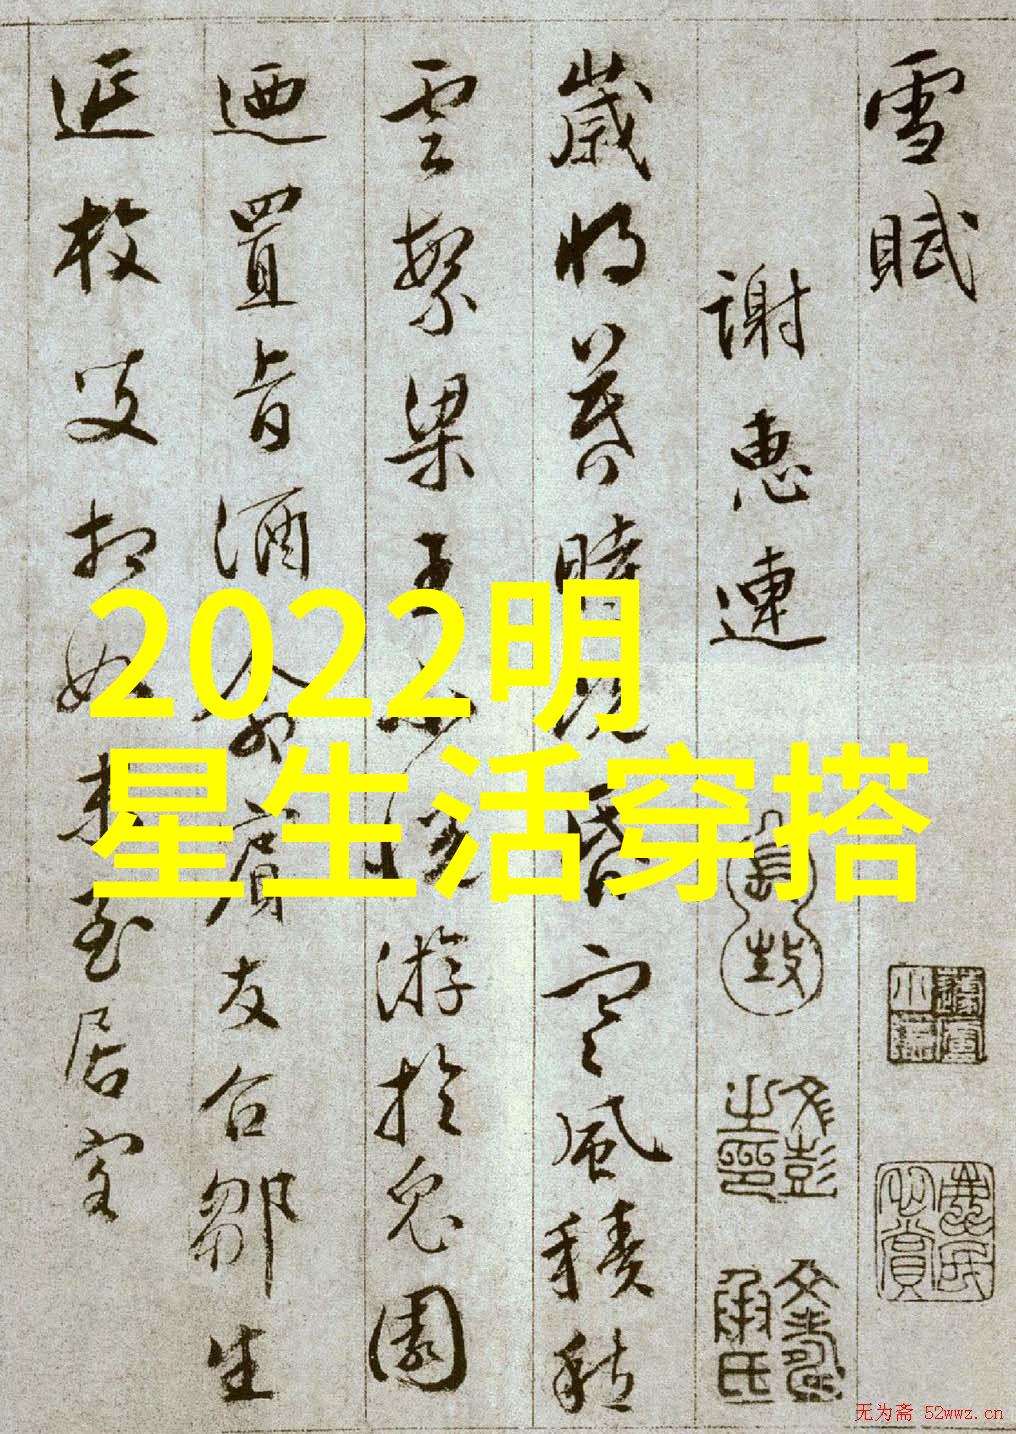 雪賦
謝惠連
歲将暮時既昏寒風積愁
雲繁梁王不悅游於兔園
迺置旨酒命賓友召鄒生
延枚叟相如末至居客
2022明
星生活穿搭
文彭之印
文壽承氏
无为斋 52wwz.cn